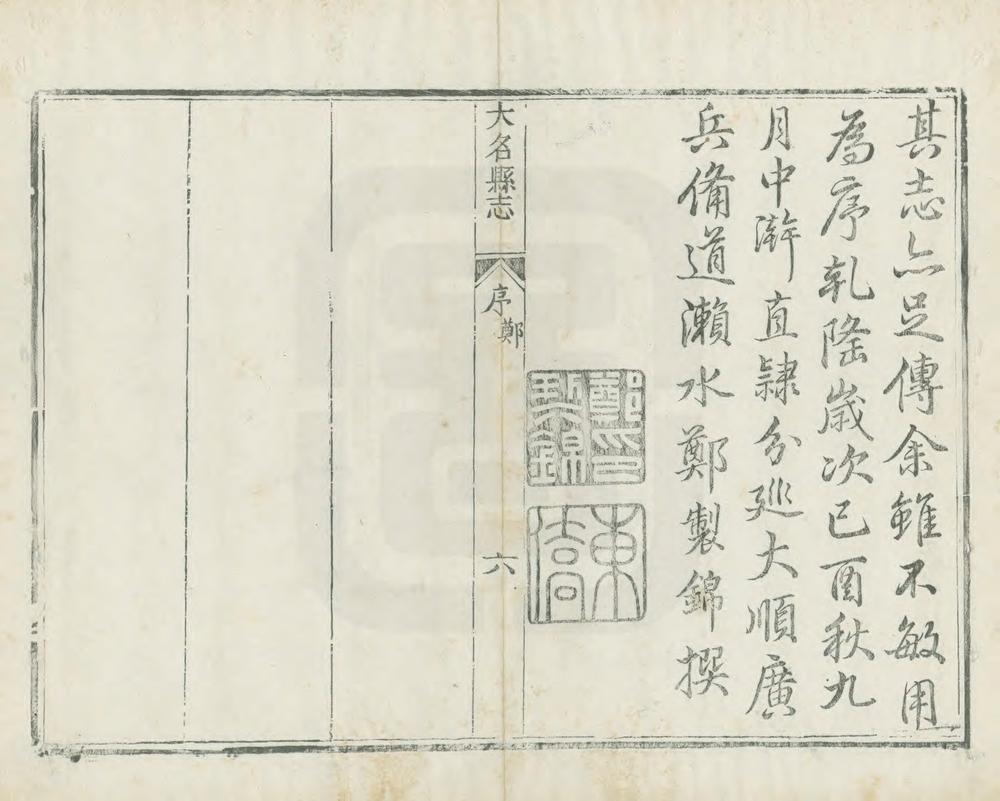 其志亦足傳余雖不敏用
為序乾隆歲次己酉秋九
月中澣直隸分廵大順廣
兵備道瀨水鄭製錦撰
鄭製錦印
東
大名縣志
序鄭
六